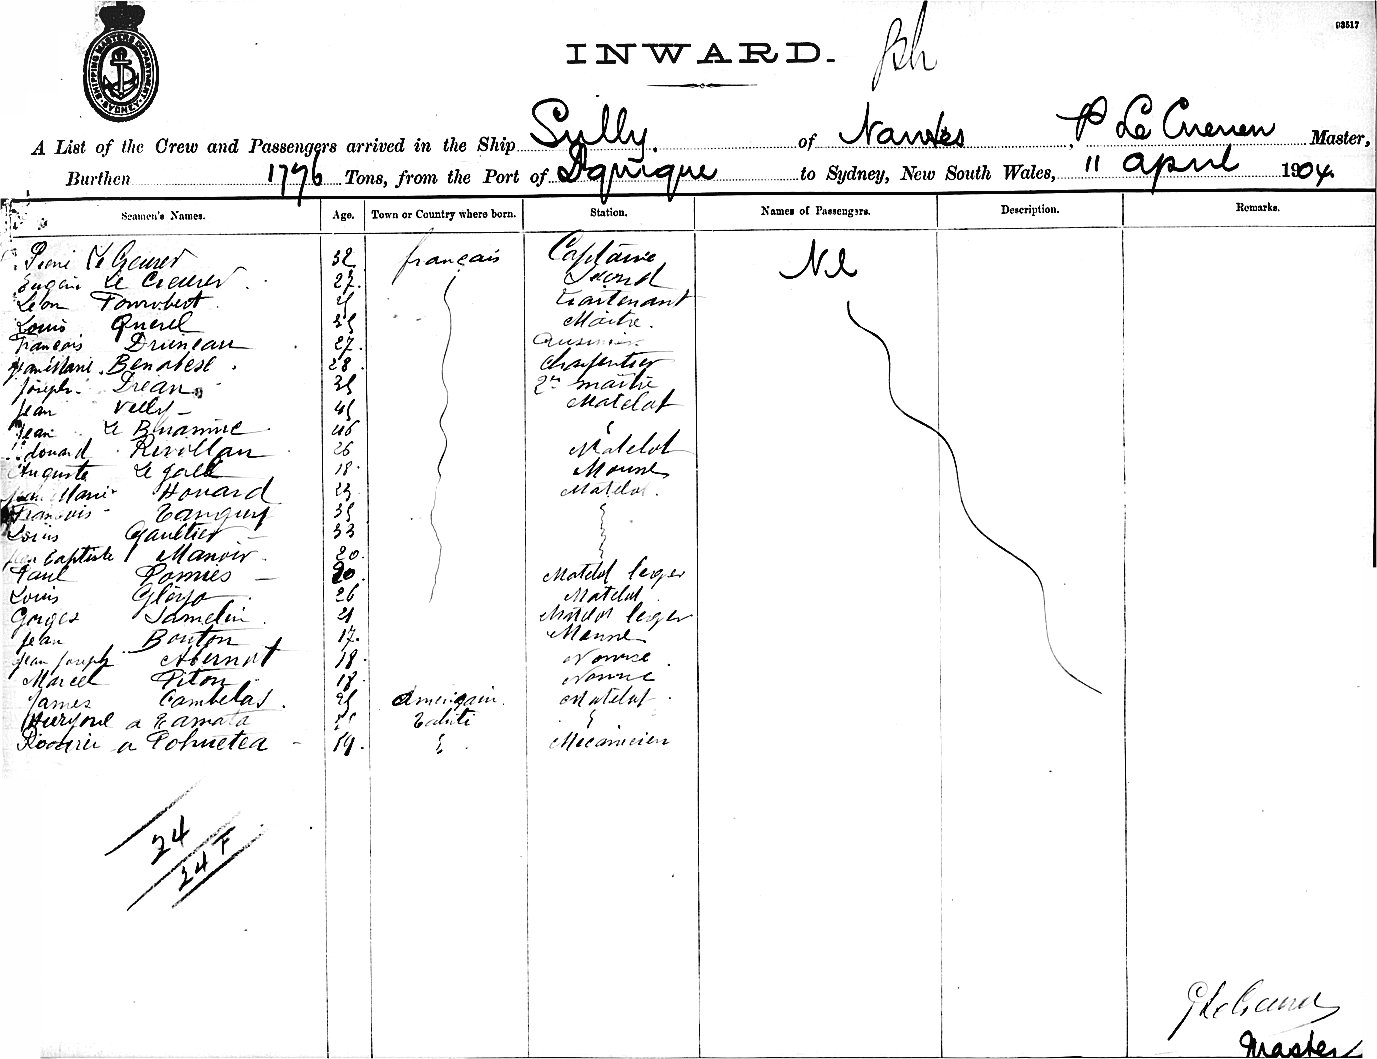 03517
SHIPPING MASTERS DEPARTMENT SYDNEY
INWARD.
A List of the Crew and Passengers arrived in the Ship Sully. of Nantes, P Le Cuenen Master,
Burthen 1776 Tons, from the Port of Iquique to Sydney, New South Wales, 11 april 1904
Seamen's Names. Age. Town or Country where born. Station. Names of Passengers. Description. Remarks.
32 français Capitaine Nil
Eugène Le 27. Second
Léon Lieutenant
Louis Querel 35 Maitre.
François Druneau 27. Cuisinier
Jean Marie Benabese 28 Charpentier
Joseph Drean 35 2me maitre
Jean Velly 45 Matelot
Jean Le 46 "
Edouard Revillan 26 Matelot
Auguste Le gall 18 Mousse
Jean Marie Houard 23 Matelot.
François Tanguy 35
Louis Gaultier 33
Jean Baptiste Manoir. 20.
Paul Pomies 20 Matelot leger
Louis Gléyo 26 Matelot
Gorges Jamelin. 21 Matelot leger
Jean Bouton 17. Mousse
Jean Joseph Abernot 18 Novice
Marcel Piton 18 Novice
James Cambelas. 25 Americain. Matelot
a Tamata Tahiti "
a Pohuetea 19. " Mecanicien
24
24 F
Master